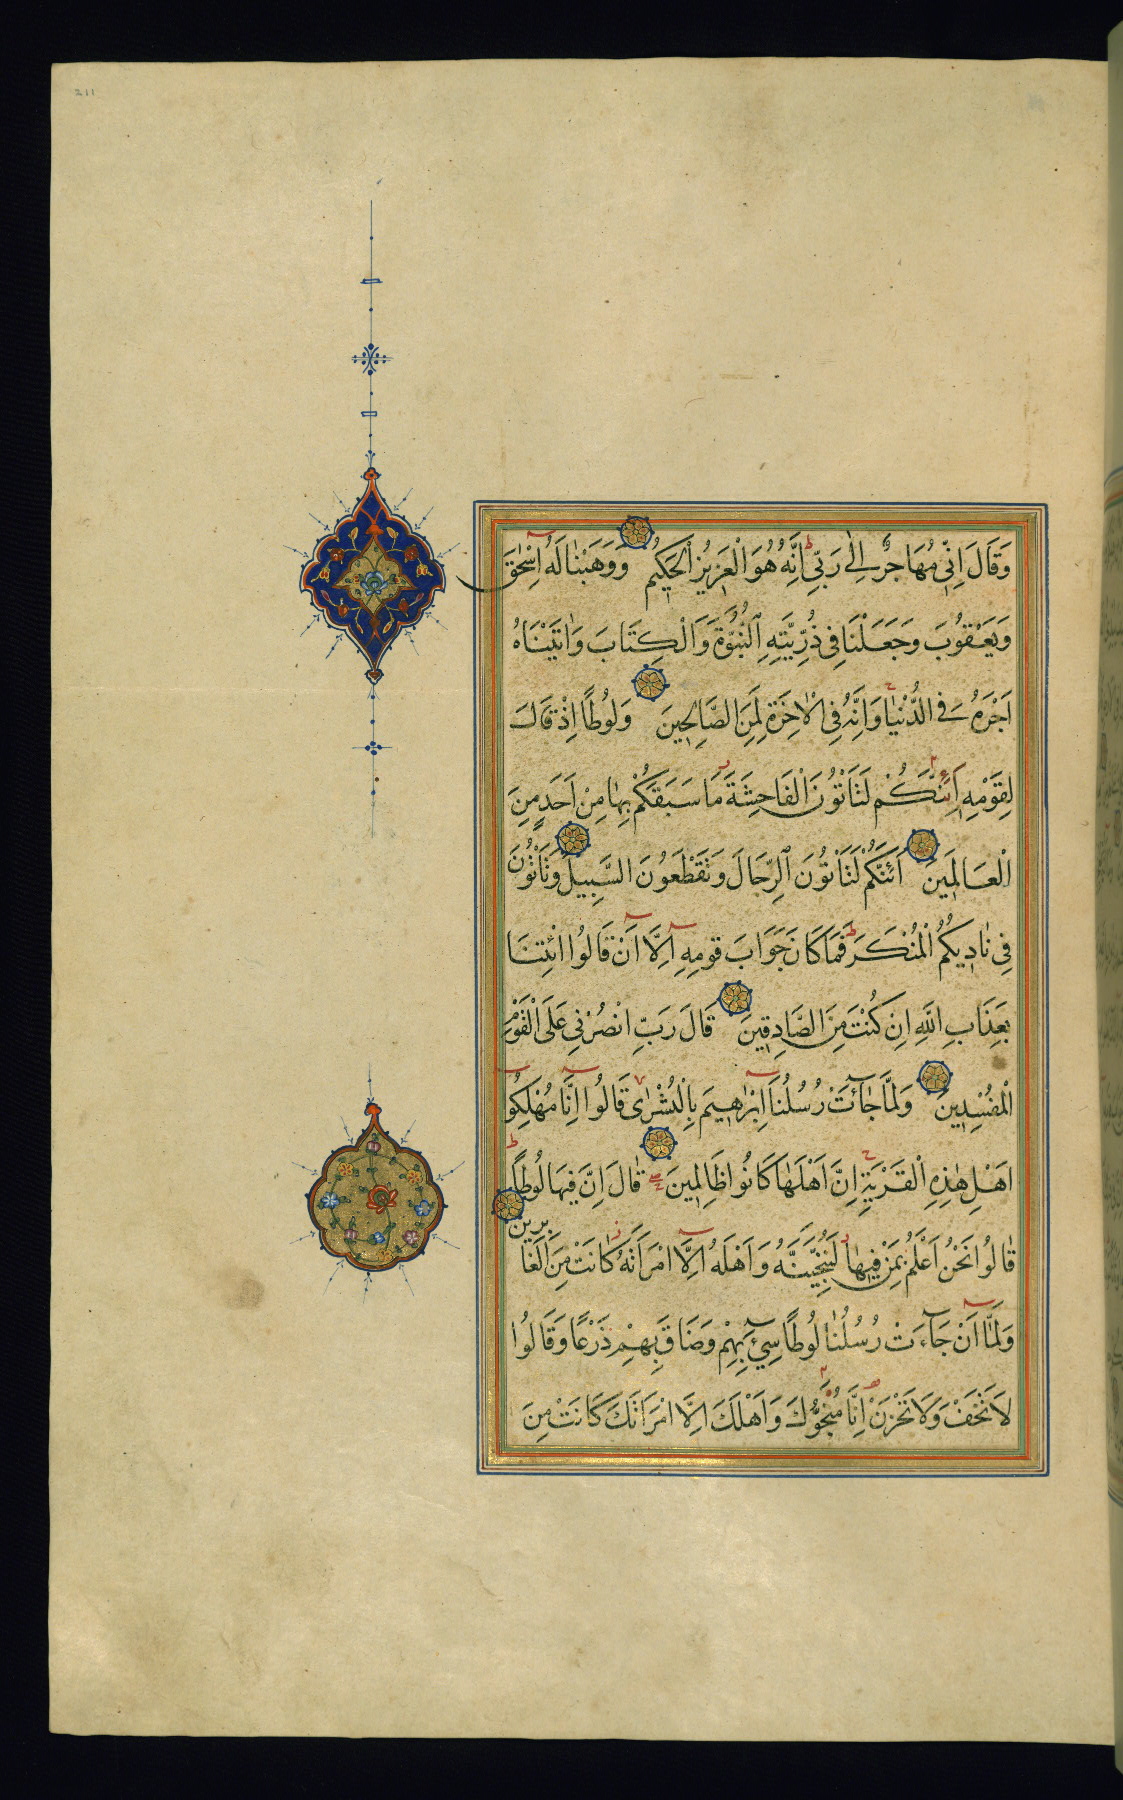 211
وَقَالَ اِنّ۪ي مُهَاجِرٌ اِلٰى رَبّ۪ي اِنَّهُ هُوَ الْعَز۪يزُ الْحَك۪يمُ وَوَهَبْنَا لَهُ اِسْحٰقَ
وَيَعْقُوبَ وَجَعَلْنَا ف۪ي ذُرِّيَّتِهِ النُّبُوَّةَ وَالْكِتَابَ وَاٰتَيْنَاهُ
اَجْرَهُ فِي الدُّنْيَا وَاِنَّهُ فِي الْاٰخِرَةِ لَمِنَ الصَّالِح۪ينَ وَلُوطًا اِذْ قَالَ
لِقَوْمِه۪ اَئِنَّكُمْ لَتَأْتُونَ الْفَاحِشَةَ مَا سَبَقَكُمْ بِهَا مِنْ اَحَدٍ مِنَ
الْعَالَم۪ينَ اَئِنَّكُمْ لَتَأْتُونَ الرِّجَالَ وَتَقْطَعُونَ السَّب۪يلَ وَتَأْتُونَ
ف۪ي نَاد۪يكُمُ الْمُنْكَرَ فَمَا كَانَ جَوَابَ قَوْمِه۪ اِلَّا اَنْ قَالُوا ائْتِنَا
بِعَذَابِ اللّٰهِ اِنْ كُنْتَ مِنَ الصَّادِق۪ينَ قَالَ رَبِّ انْصُرْن۪ي عَلَى الْقَوْمِ
الْمُفْسِد۪ينَ وَلَمَّا جَاءَتْ رُسُلُنَا اِبْرٰه۪يمَ بِالْبُشْرٰى قَالُوا اِنَّا مُهْلِكُوا
اَهْلِ هٰذِهِ الْقَرْيَةِ اِنَّ اَهْلَهَا كَانُوا ظَالِم۪ينَ قَالَ اِنَّ ف۪يهَا لُوطًا
قَالُوا نَحْنُ اَعْلَمُ بِمَنْ ف۪يهَا لَنُنَجِّيَنَّهُ وَاَهْلَهُ اِلَّا امْرَاَتَهُ كَانَتْ مِنَ الْغَابِر۪ينَ
وَلَمَّا اَنْ جَاءَتْ رُسُلُنَا لُوطًا س۪يءَ بِهِمْ وَضَاقَ بِهِمْ ذَرْعًا وَقَالُوا
لَا تَخَفْ وَلَا تَحْزَنْ اِنَّا مُنَجُّوكَ وَاَهْلَكَ اِلَّا امْرَاَتَكَ كَانَتْ مِنَ